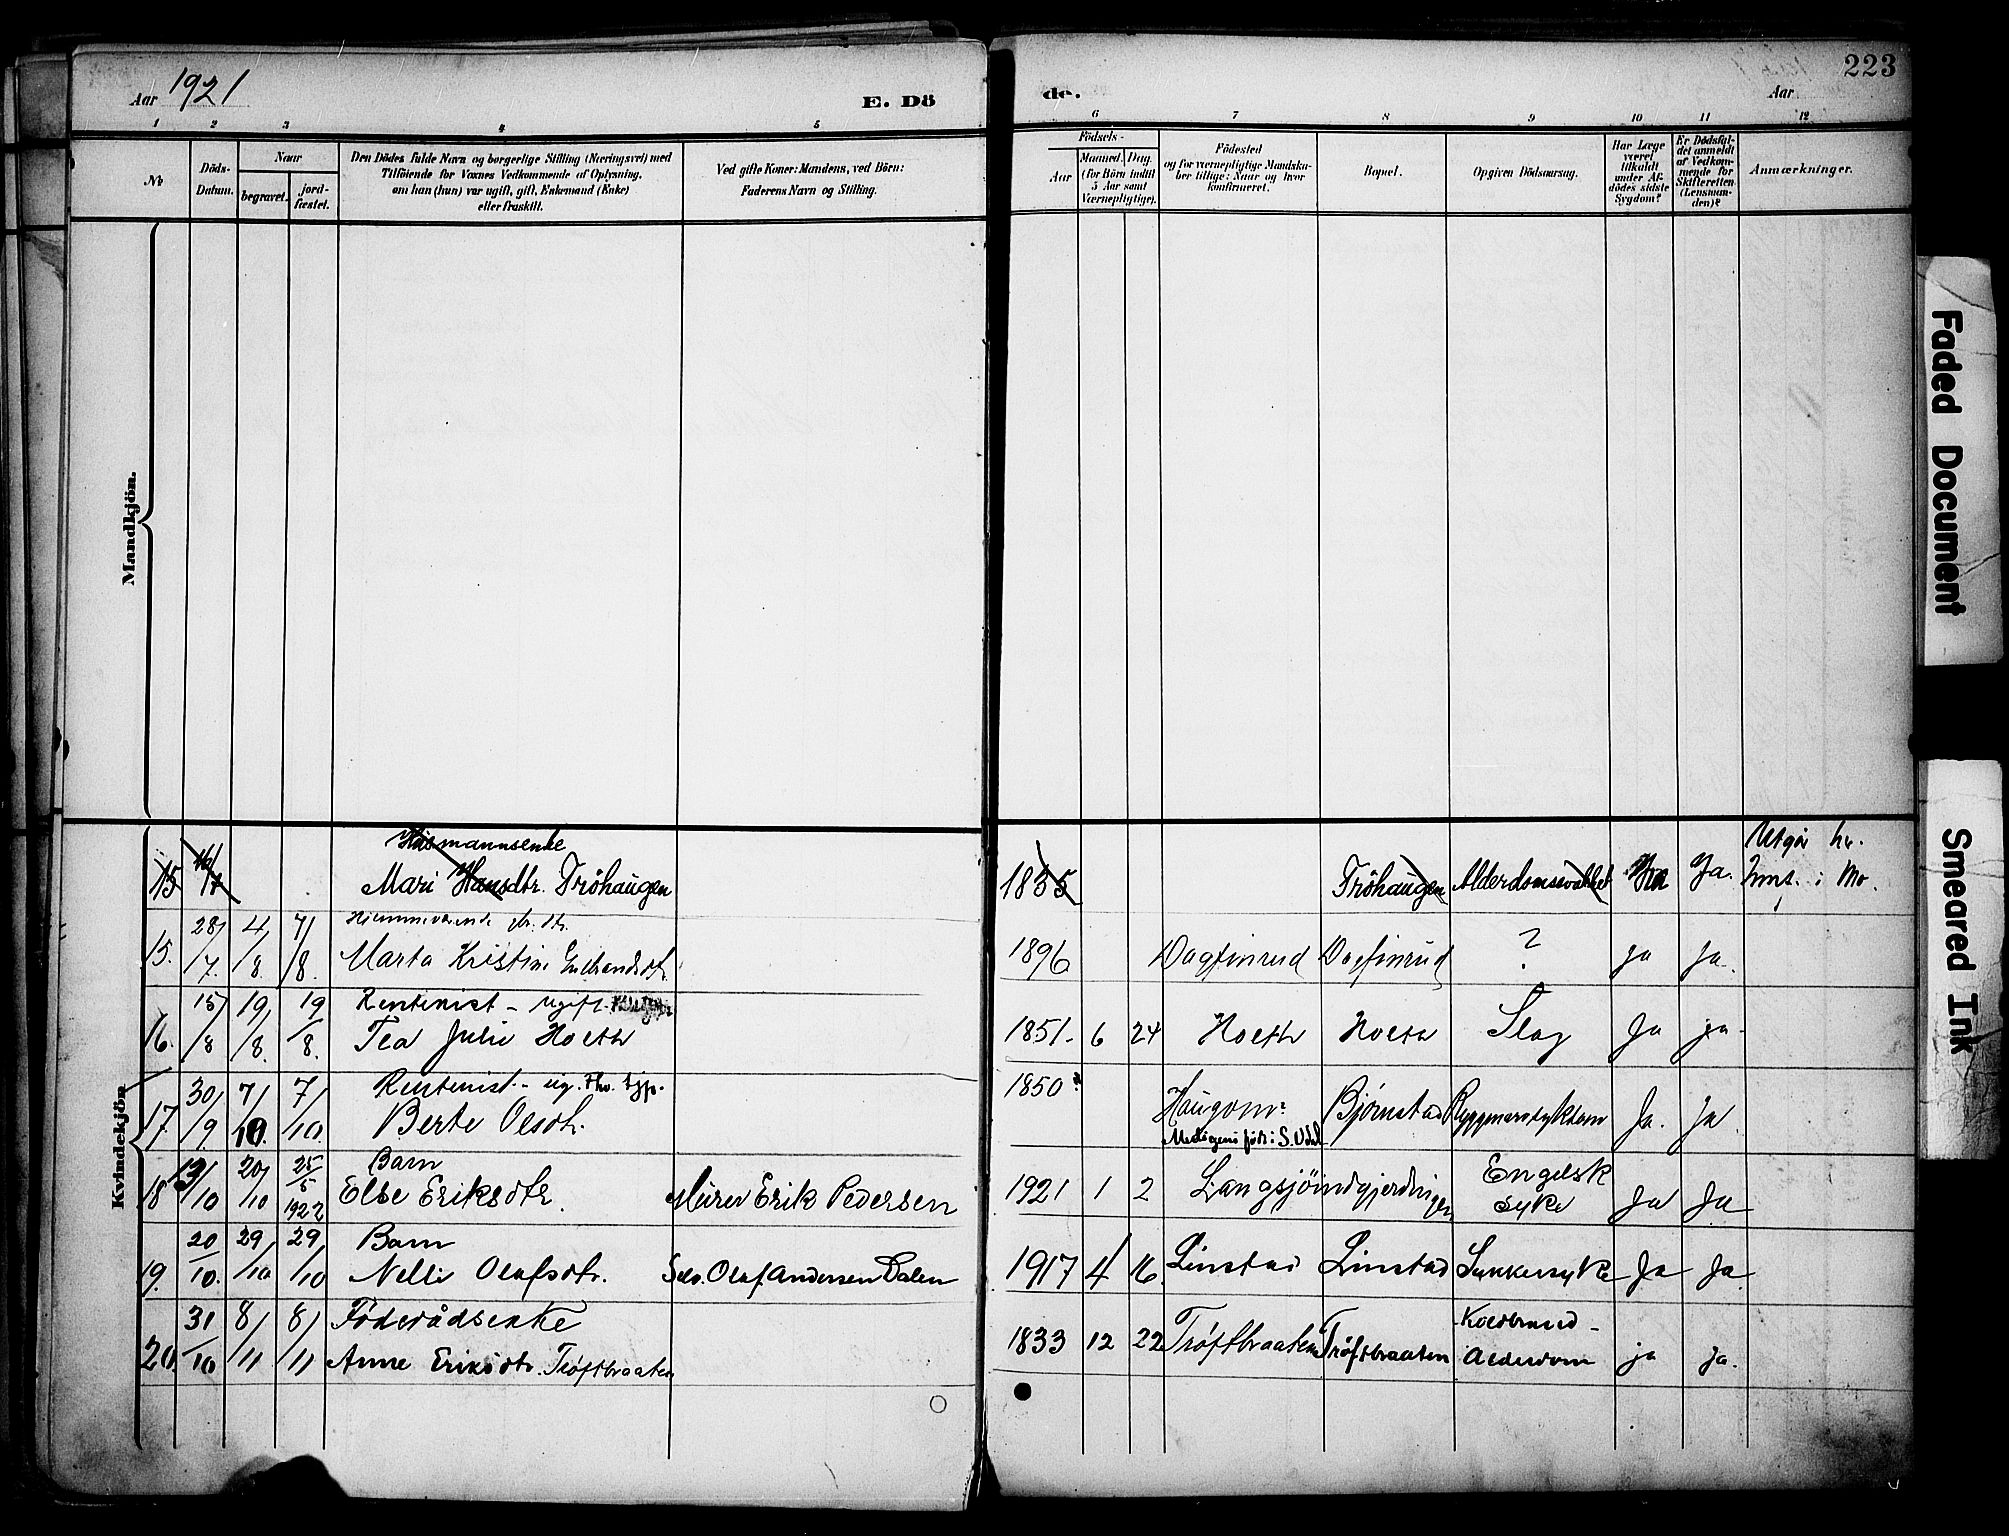 Aar 1921
E. Dö
de.
Aar
223
1 2 3 4 5 6 7 8 9 10 11 12
№
Döds-
Datum.
Naar
begravet.
jord-
fæstet.
Den Dödes fulde Navn og borgerlige Stilling (Næringsvei) med
Tilföiende for Voxnes Vedkommende af Oplysning,
om han (hun) var ugift, gift, Enkemand (Enke)
eller fraskilt.
Ved gifte Koner: Mandens, ved Börn:
Faderens Navn og Stilling.
Födsels-
Aar
Maaned. Dag.
(for Börn indtil
5 Aar samt
Værnepligtige).
Födested
og for værnepligtige Mandska-
ber tillige: Naar og hvor
konfirmeret.
Bopæl.
Opgiven Dödsaarsag.
Har Læge
været
tilkaldt
under Af-
dödes sidste
Sygdom?
Er Dödsfal-
det anmeldt
af Vedkom-
mende for
Skifteretten
(Lensman-
den)?
Anmærkninger.
Mandkjön.
Kvindekjön
Husmannsenke
15 Mari Hansdtr. Tröhaugen 1835 Tröhaugen Alderdomssvakhet Ja.
Utgår
i Mo.
15. 28/7. 4/8. 7/8. Marta Kristine Gulbrandsdt. 1896 Dagfinrud Dagfinrud ? Ja Ja.
Rentenist - ugift.
16. 15/8 19/8. 19/8. Tea Julie Hoeth 1851. 6 24 Hoeth Hoeth Slag Ja ja.
Rentenist - ug.
17. 30/9 7/10. 7/10. Berte Olsdt. 1850 Haugom Bjørnstad Ja. Ja.
født i S. Odal
Barn
18 13/10 20/10 25/5 1922 Else Eriksdtr. Murer Erik Pedersen 1921 1 2 Langsjöindgjerdingen Engelsk
syke Ja Ja
Barn
19. 20/10. 29/10 29/10 Nelli Olafsdtr. Selv. Olaf Andersen Dalen 1917 4 16. Linstad Linstad Sukkersyke Ja Ja
Föderådsenke
20. 31/10 8/11 8/11 Anne Eriksdtr. Trøftbraaten 1833 12 22 Trøftbraaten Trøftbraaten Koldbrand -
Alderdom ja ja.
Faded Document
Smeared Ink